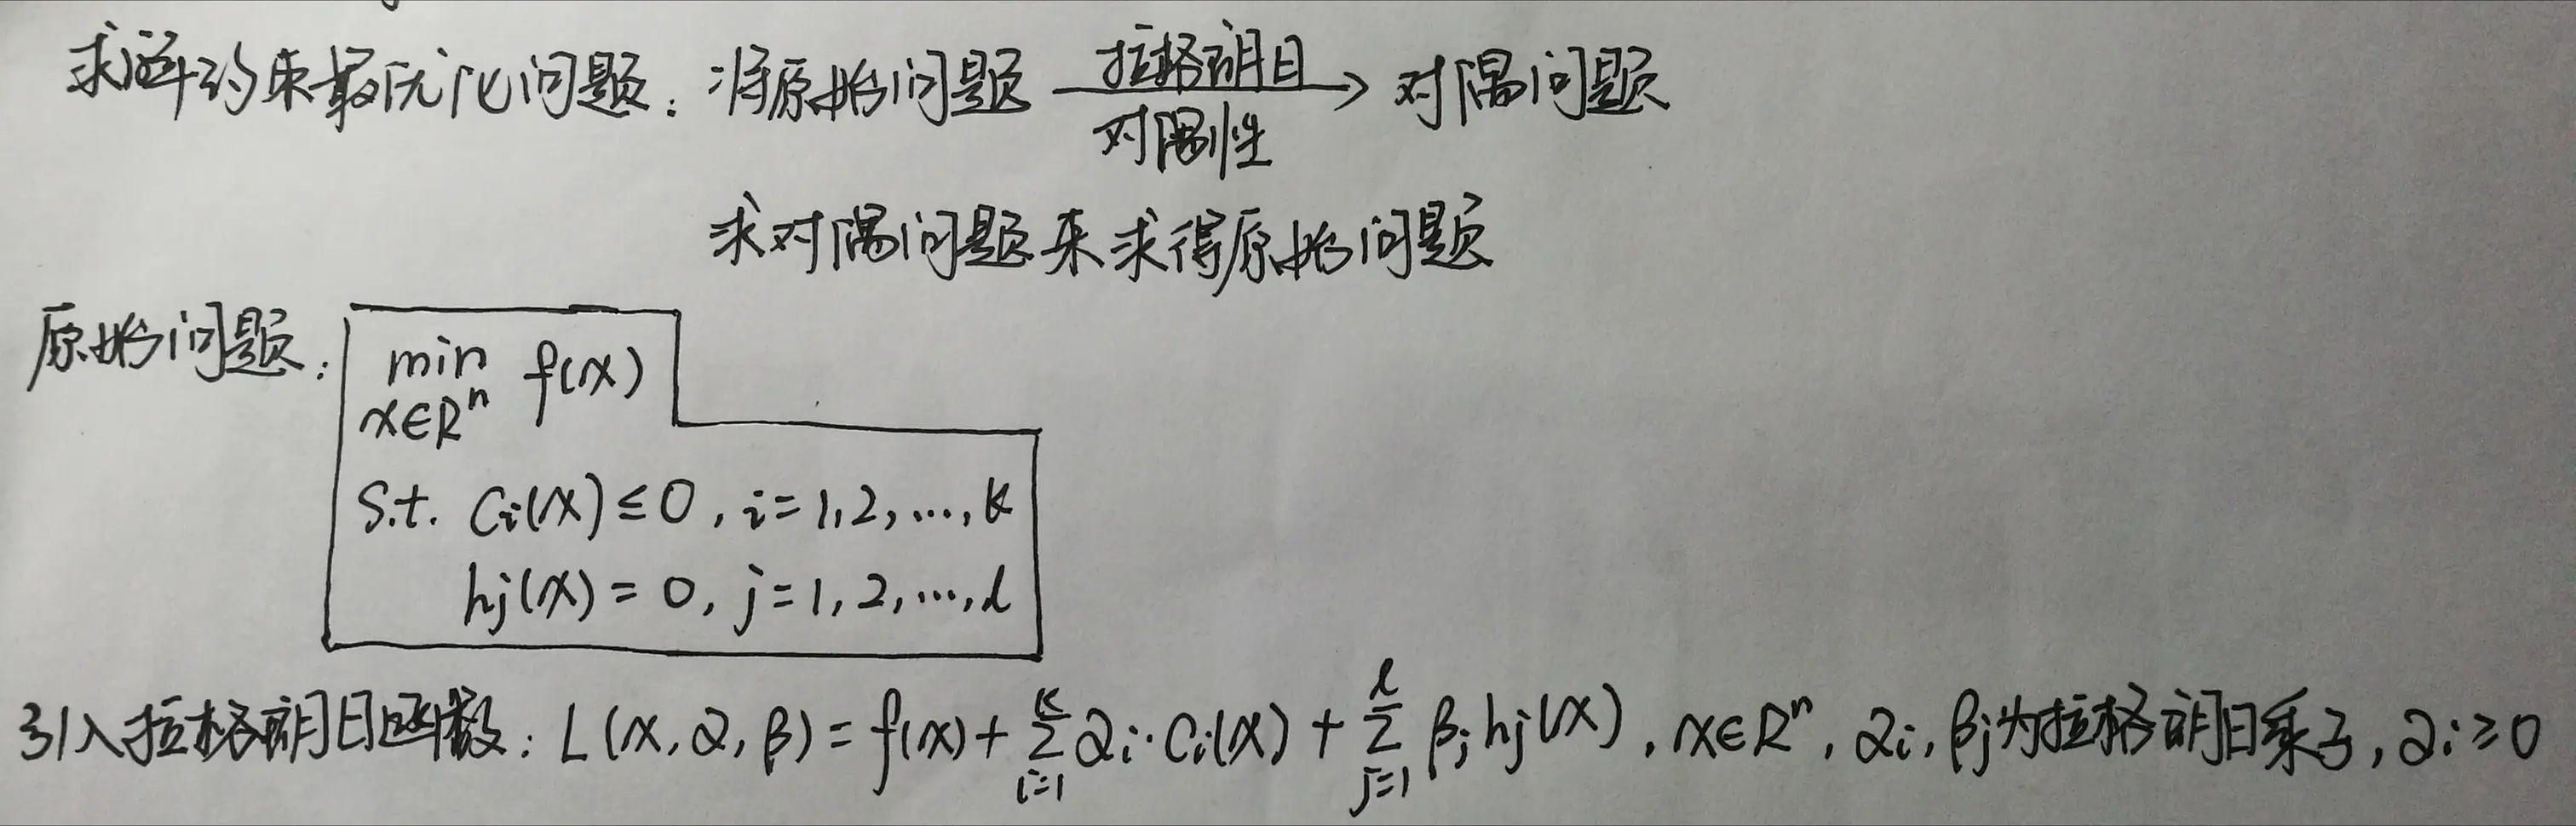 求解约束最优化问题:将原始问题 拉格朗日 对偶性 → 对偶问题
求对偶问题来求得原始问题
原始问题:
min f(x)
x∈Rⁿ
s.t. Ci(x)≤0, i=1,2,...,k
hj(x)=0, j=1,2,...,l
引入拉格朗日函数: L(x,α,β)=f(x)+∑_{i=1}^{k} αi·Ci(x)+∑_{j=1}^{l} βj hj(x), x∈Rⁿ, αi,βj为拉格朗日乘子, αi≥0